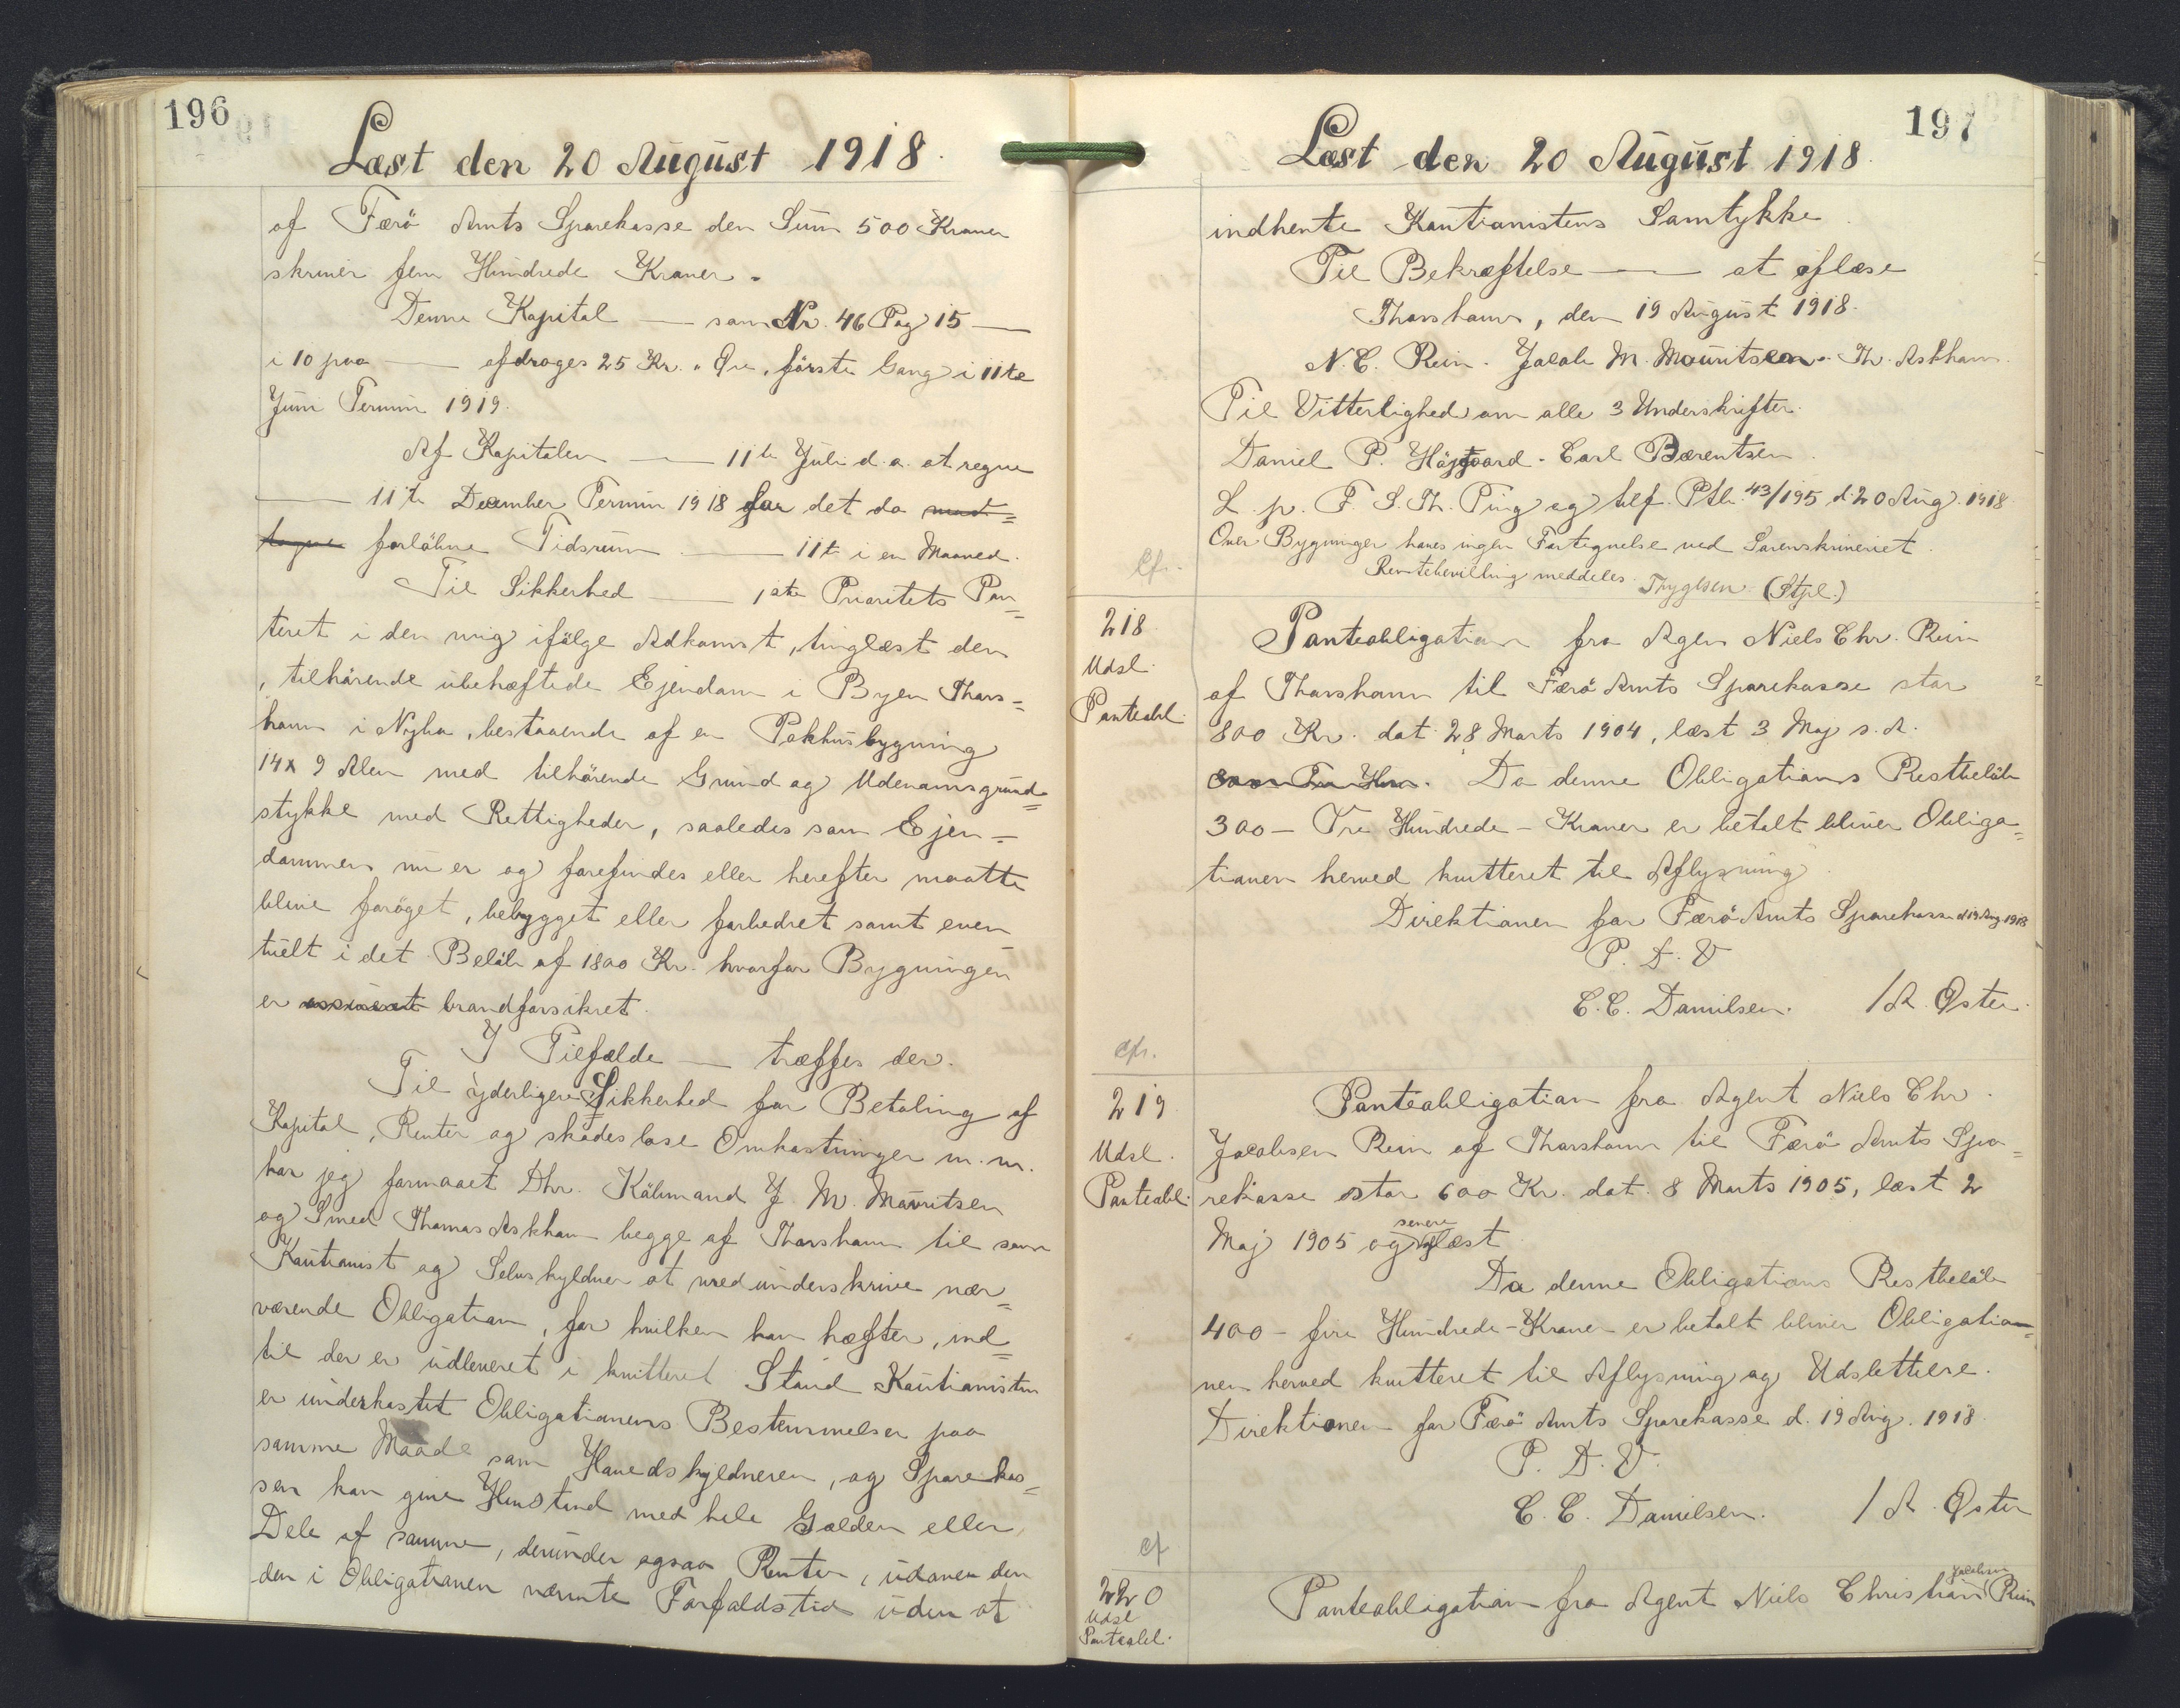 196
Læst den 20 August 1918.
af Færö Amts Sparekasse den Sum 500 Kroner
skriver fem Hundrede Kroner.
Denne Kapital — som Nr. 46 Pag 15 —
i 10 paa — afdrages 25 Kr. " Øre, første Gang i 11te
Juni Termin 1919.
Af Kapitalen — 11te Juli d. a. at regne
— 11te December Termin 1918 for det da
forløbne Tidsrum — 11te i en Maaned.
Til Sikkerhed — 1ste Prioritets Pan=
teret i den mig ifølge Adkomst, tinglæst den
, tilhørende ubehæftede Ejendom i Byen Thors=
havn i Nyho, bestaaende af en Pakhusbygning
14 x 9 Alen med tilhørende Grund og Udenomsgrund=
stykke med Rettigheder, saaledes som Ejen=
dommen nu er og forefindes eller herefter maatte
blive forøget, bebygget eller forbedret samt even=
tuelt i det Beløb af 1800 Kr. hvorfor Bygningen
er assureret brandforsikret.
I Tilfælde — træffes der.
Til yderligere Sikkerhed for Betaling af
Kapital, Renter og skadesløse Omkostninger m. m.
har jeg formaaet Dhr. Købmand J. M. Mouritsen
og Smed Thomas Askham begge af Thorshavn til som
Kautionist og Selvskyldner at medunderskrive nær=
værende Obligation, for hvilken han hæfter, ind=
til den er udleveret i kvitteret Stand Kautionisten
er underkastet Obligationens Bestemmelser paa
samme Maade som Hovedskyldneren, og Sparekas=
sen kan give Henstand med hele Gælden eller
Dele af samme, derunder ogsaa Renter, udover den
den i Obligationen nævnte Forfaldstid uden at
197
Læst den 20 August 1918.
indhente Kautionistens Samtykke
Til Bekræftelse — at aflæse
Thorshavn, den 19 August 1918.
N. C. Rein. Jacob M. Mouritsen. Th. Askham.
Til Vitterlighed om alle 3 Underskrifter.
Daniel P. Højgaard. Carl Bærentsen.
L. p. F. S. Th. Ting og tilf. Ptb. 43/195 d. 20 Aug. 1918.
Over Bygninger haves ingen Fortegnelse ved Sorenskriveriet.
Rentebevilling meddeles. Tryglsen (Stpl.)
Cfr.
218
Udsl.
Panteobl.
Panteobligation fra Agen Niels Chr. Rein
af Thorshavn til Færö Amts Sparekasse stor
800 Kr. dat 28 Marts 1904, læst 3 Maj s. A.
Da denne Obligations Restbeløb
300 – Tre Hundrede – Kroner er betalt bliver Obliga=
tionen herved kvitteret til Aflysning.
Direktionen for Færö Amts Sparekasse d 19 Aug. 1918
P. D. V
C. C. Danielsen. / A. Øster.
Cfr.
219
Udsl.
Panteobl.
Panteobligation fra Agent Niels Chr.
Jacobsen Rein af Thorshavn til Færö Amts Spa=
rekasse stor 600 Kr. dat. 8 Marts 1905, læst 2
Maj 1905 og senere læst
Da denne Obligations Restbeløb
400 – fire Hundrede – Kroner er betalt bliver Obligatio=
nen herved kvitteret til Aflysning og Udslettelse.
Direktionen for Færö Amts Sparekasse d. 19 Aug. 1918
P. D. V.
C. C. Danielsen. / A. Øster
Cf
220
Udsl
Panteobl.
Panteobligation fra Agent Niels Christian Jacobsen Rein